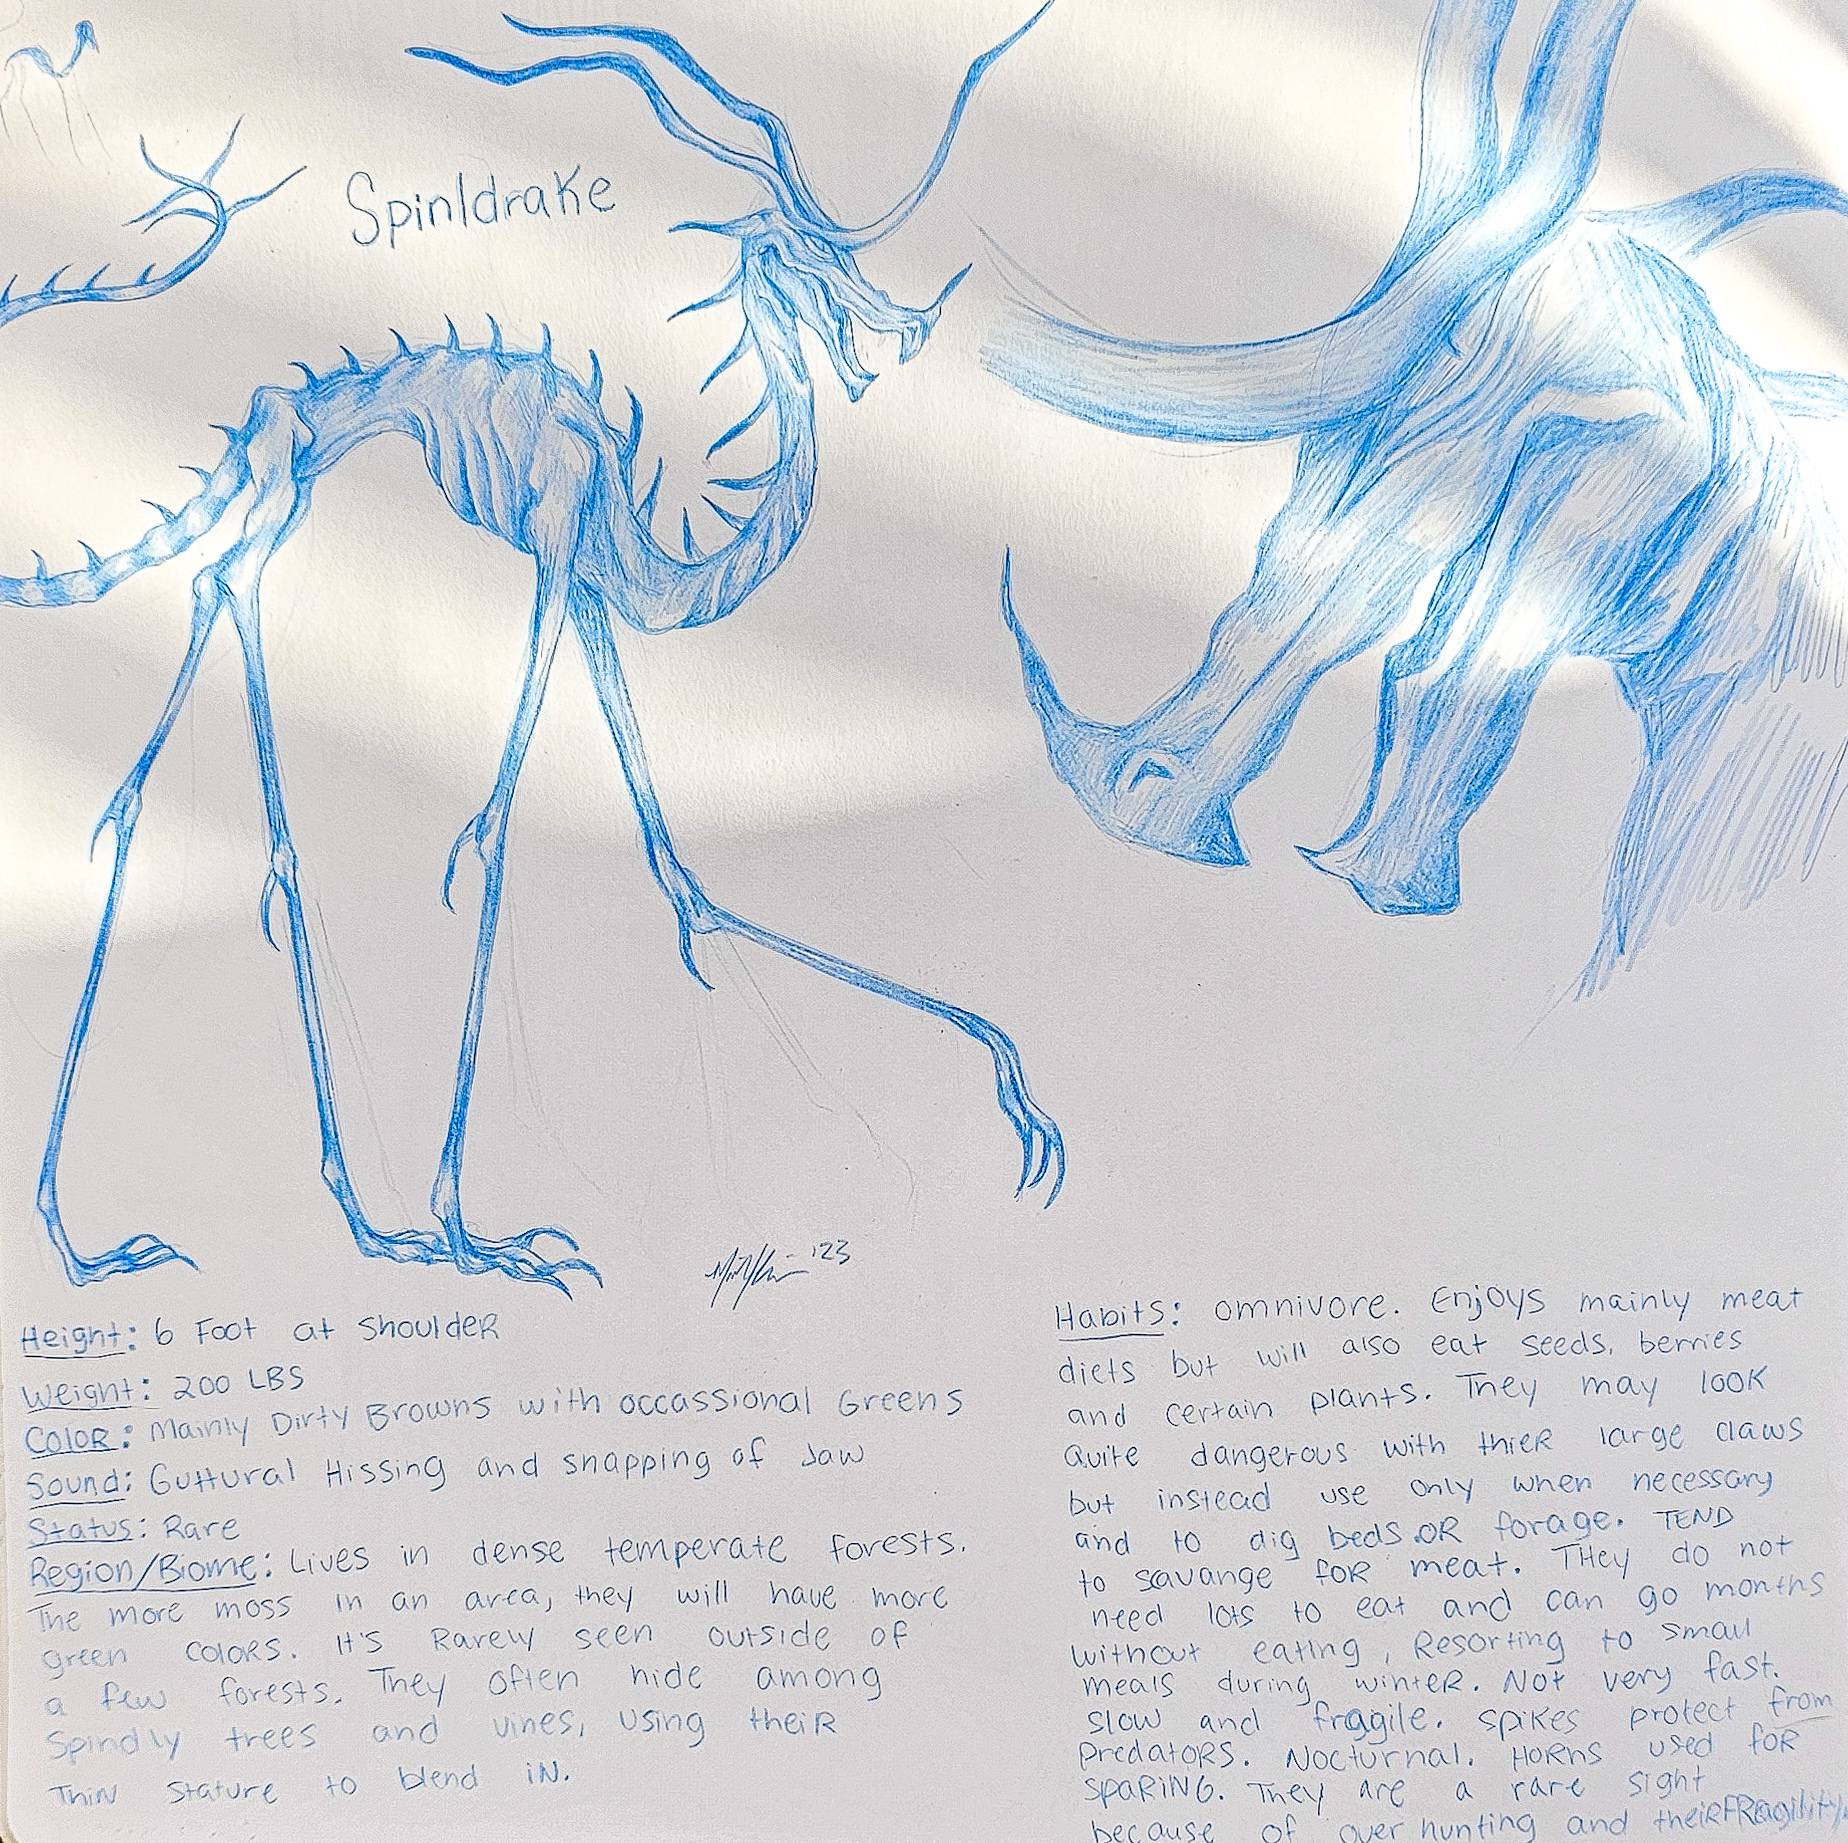 Spinldrake
'23
Height: 6 Foot at ShouldeR
Weight: 200 LBS
ColoR: Mainly Dirty Browns with occassional Greens
Sound: Guttural Hissing and snapping of Jaw
Status: Rare
Region/Biome: Lives in dense temperate forests.
The more moss in an area, they will have more
green coloRs. It's Rarely seen outside of
a few forests. They often hide among
Spindly trees and vines, using theiR
Thin Stature to blend iN.
Habits: omnivore. Enjoys mainly meat
diets but will also eat seeds, berries
and certain plants. They may look
Quite dangerous with thieR large claws
but instead use only when necessary
and to dig beds OR forage. TEND
to scavange foR meat. THey do not
need lots to eat and can go months
without eating, Resorting to small
meals during winteR. Not very fast.
slow and fragile. spikes protect from
PredatoRs. Nocturnal. HoRns used foR
SPARiNG. They are a rare sight
because of over hunting and theiR FRagility.